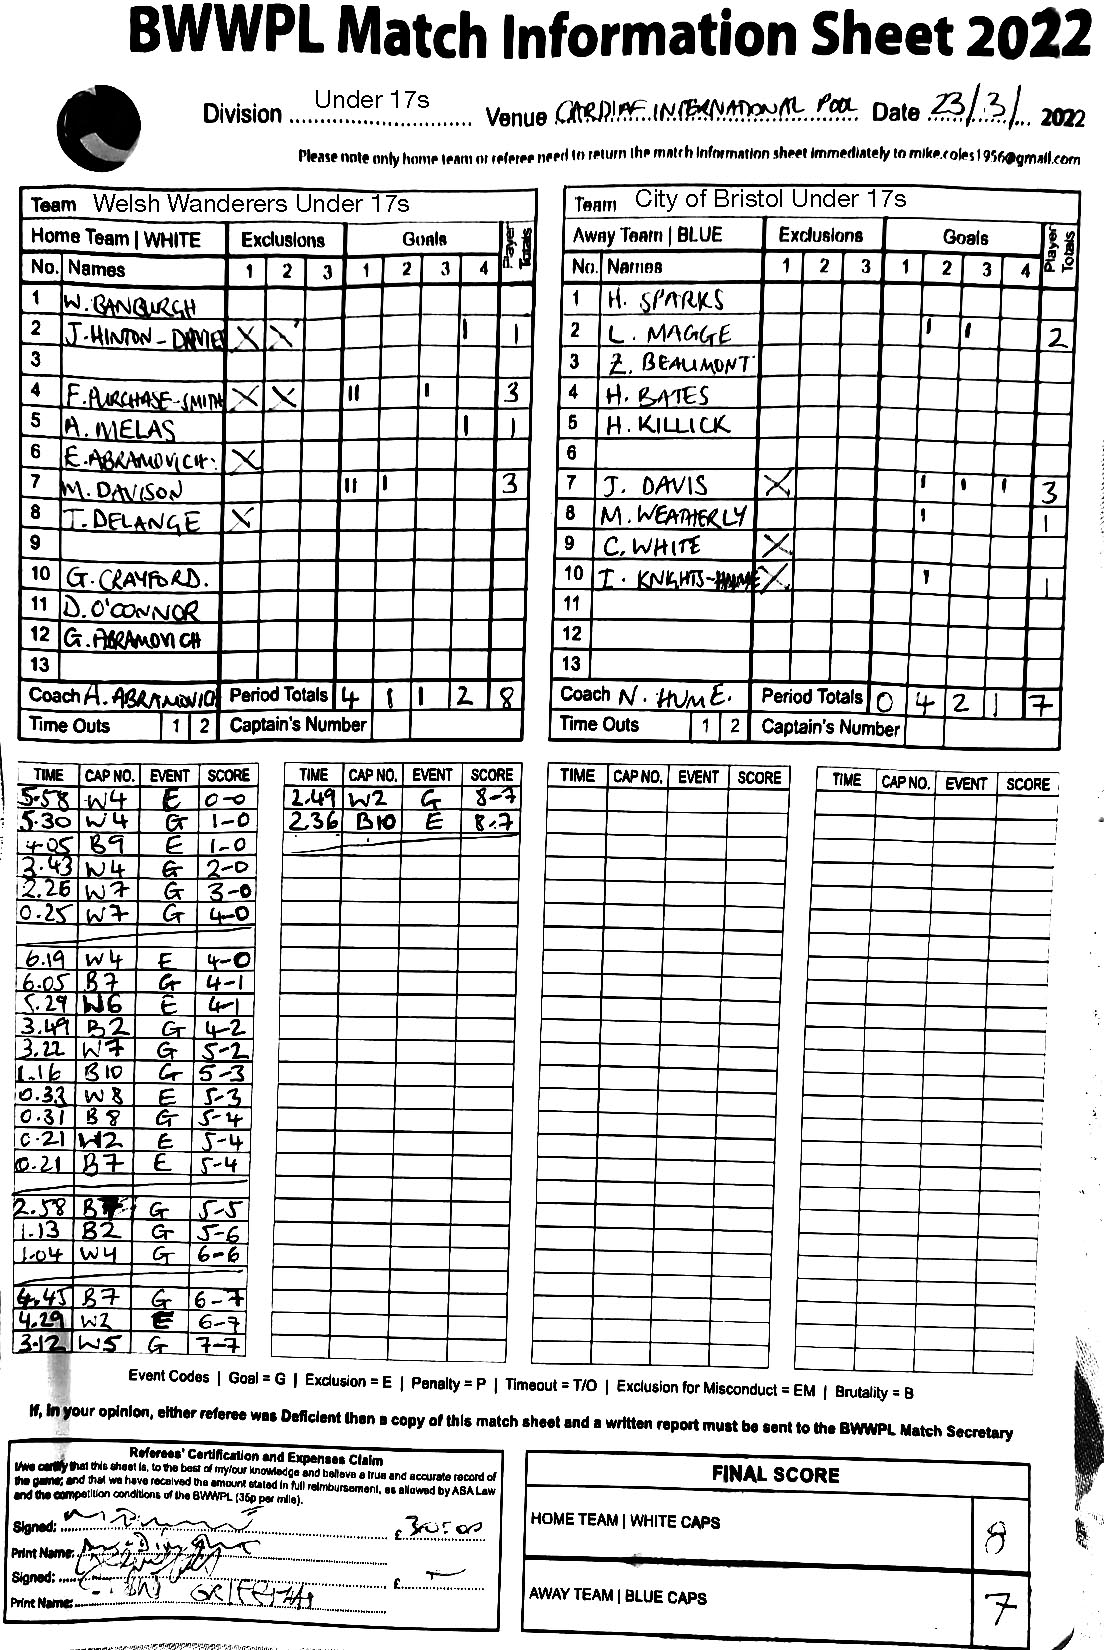 BWWPL Match Information Sheet 2022
Division Under 17s Venue CARDIFF INTERNATIONAL POOL Date 23/3/ 2022
Please note only home team or referee need to return the match information sheet immediately to mike.coles1956@gmail.com
Team Welsh Wanderers Under 17s
Home Team | WHITE Exclusions Goals Player Totals
No. Names 1 2 3 1 2 3 4
1 W. BANBURGH
2 J. HINTON-DAVIES X X I 1
3
4 F. PURCHASE-SMITH X X II I 3
5 A. MELAS I 1
6 E. ABRAMOVICH. X
7 M. DAVISON II I 3
8 T. DELANGE X
9
10 G. CRAYFORD.
11 D. O'CONNOR
12 G. ABRAMOVICH
13
Coach A. ABRAMOVICH Period Totals 4 1 1 2 8
Time Outs 1 2 Captain's Number
Team City of Bristol Under 17s
Away Team | BLUE Exclusions Goals Player Totals
No. Names 1 2 3 1 2 3 4
1 H. SPARKS
2 L. MAGGE I I 2
3 Z. BEAUMONT
4 H. BATES
5 H. KILLICK
6
7 J. DAVIS X I I I 3
8 M. WEATHERLY I 1
9 C. WHITE X
10 I. KNIGHTS- X I 1
11
12
13
Coach N. HUME. Period Totals 0 4 2 1 7
Time Outs 1 2 Captain's Number
TIME CAP NO. EVENT SCORE
5.58 W4 E 0-0
5.30 W4 G 1-0
4.05 B9 E 1-0
3.43 W4 G 2-0
2.26 W7 G 3-0
0.25 W7 G 4-0
6.19 W4 E 4-0
6.05 B7 G 4-1
5.29 W6 E 4-1
3.49 B2 G 4-2
3.22 W7 G 5-2
1.16 B10 G 5-3
0.33 W8 E 5-3
0.31 B8 G 5-4
0.21 W2 E 5-4
0.21 B7 E 5-4
2.58 B7 G 5-5
1.13 B2 G 5-6
1.04 W4 G 6-6
4.45 B7 G 6-7
4.29 W2 E 6-7
3.12 W5 G 7-7
TIME CAP NO. EVENT SCORE
2.49 W2 G 8-7
2.36 B10 E 8-7
TIME CAP NO. EVENT SCORE
TIME CAP NO. EVENT SCORE
Event Codes | Goal = G | Exclusion = E | Penalty = P | Timeout = T/O | Exclusion for Misconduct = EM | Brutality = B
If, in your opinion, either referee was Deficient then a copy of this match sheet and a written report must be sent to the BWWPL Match Secretary
Referees' Certification and Expenses Claim
I/we certify that this sheet is, to the best of my/our knowledge and believe a true and accurate record of
the game; and that we have received the amount stated in full reimbursement, as allowed by ASA Law
and the competition conditions of the BWWPL (35p per mile).
Signed: £
Print Name:
Signed: £
Print Name: GRIFFITHS
FINAL SCORE
HOME TEAM | WHITE CAPS 8
AWAY TEAM | BLUE CAPS 7